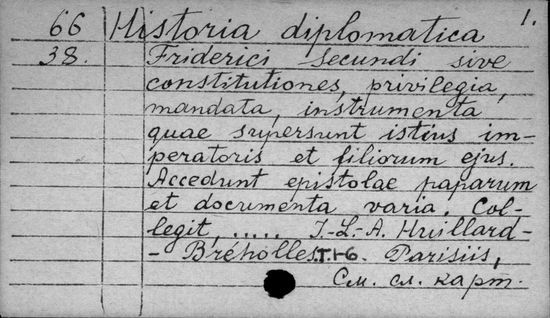 66 Historia diplomatica 1.
38. Friderici Secundi sive
constitutiones, privilegia,
mandata, instrumenta
quae supersunt istius im-
peratoris et filiorum ejus.
Accedunt epistolae paparum
et documenta varia. Col-
legit, ..... J.-L.-A. Huillard-
- Bréholles. T.1-6. Parisiis,
См. сл. карт.